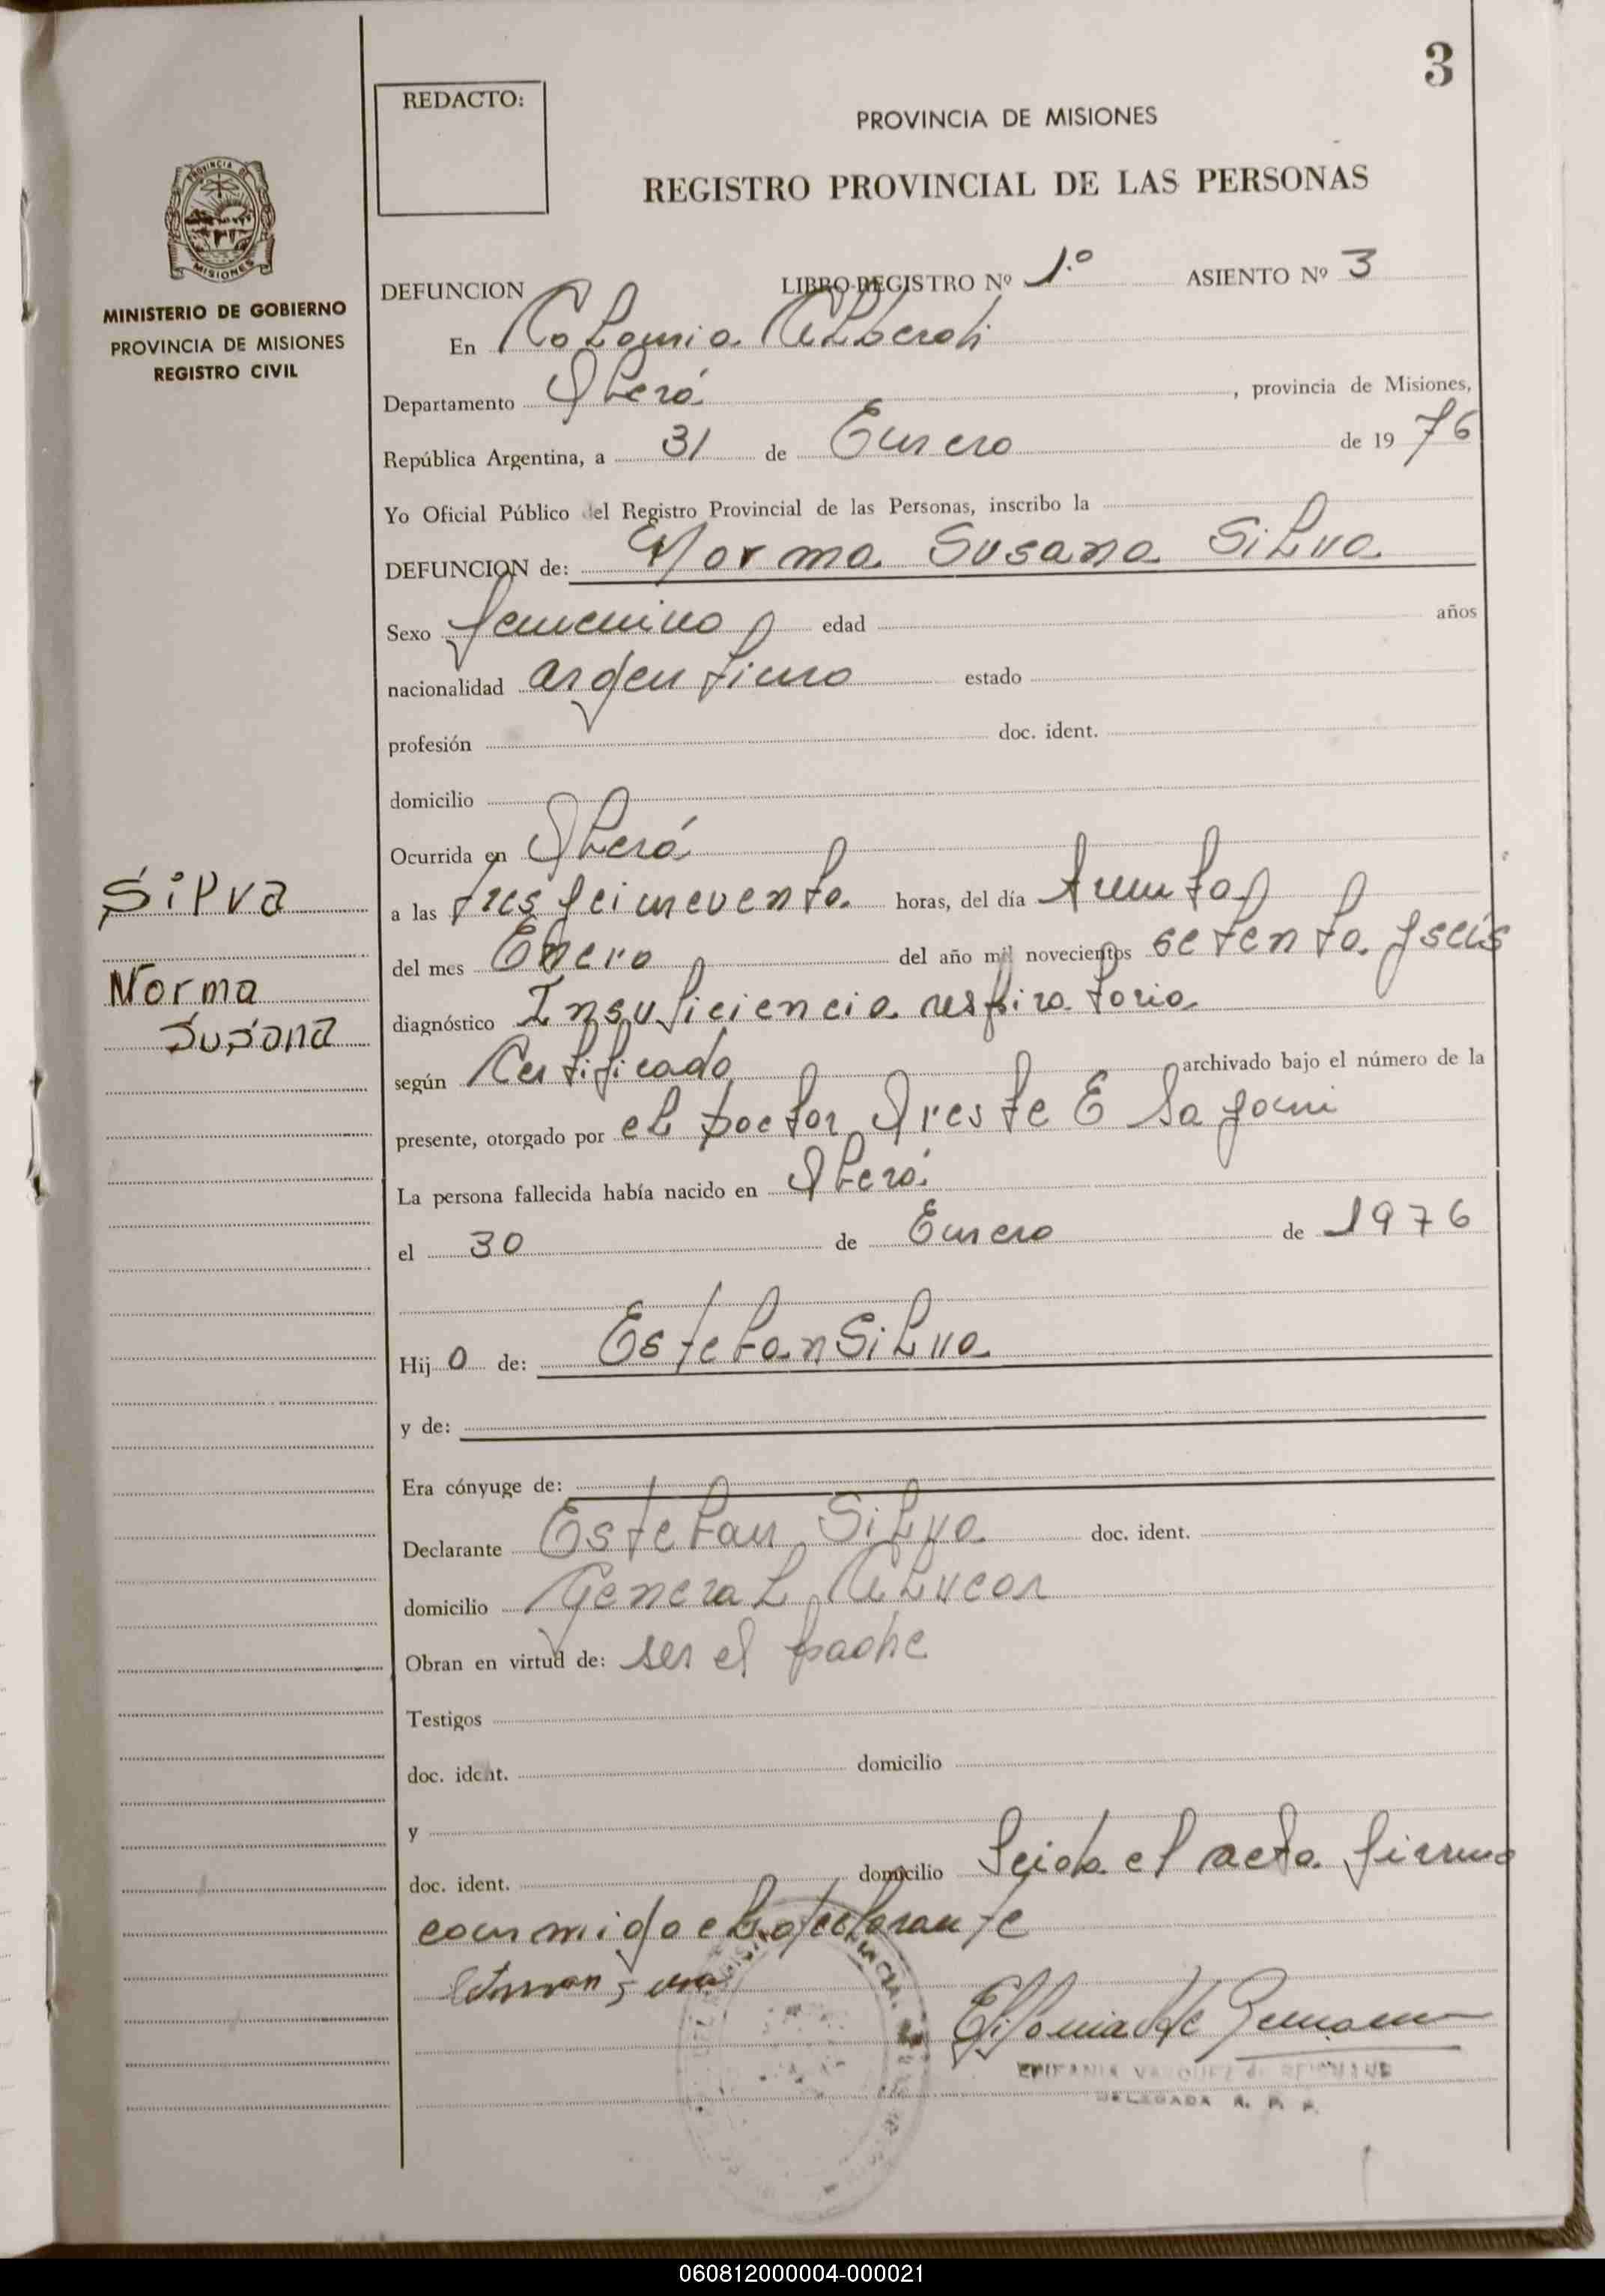 3
REDACTO:
PROVINCIA DE MISIONES
REGISTRO PROVINCIAL DE LAS PERSONAS
PROVINCIA DE
MISIONES
MINISTERIO DE GOBIERNO
PROVINCIA DE MISIONES
REGISTRO CIVIL
DEFUNCION LIBRO-REGISTRO Nº 1.º ASIENTO Nº 3
En Colonia Alberdi
Departamento Oberá, provincia de Misiones,
República Argentina, a 31 de Enero de 1976
Yo Oficial Público del Registro Provincial de las Personas, inscribo la
DEFUNCION de: Norma Susana Silva
Sexo femenino edad años
nacionalidad argentino estado
profesión doc. ident.
domicilio
Ocurrida en Oberá
a las tres y cincuenta horas, del día treinta
del mes Enero del año mil novecientos setenta y seis
diagnóstico Insuficiencia respiratoria
según Certificado archivado bajo el número de la
presente, otorgado por el Doctor Oreste E
La persona fallecida había nacido en Oberá
el 30 de Enero de 1976
Hijo de: Esteban Silva
y de:
Era cónyuge de:
Declarante Esteban Silva doc. ident.
domicilio General Alvear
Obran en virtud de: ser el padre
Testigos
doc. ident. domicilio
y
doc. ident. domicilio Leida el acta firma
conmigo el declarante
EPIFANIA VAZQUEZ de
DELEGADA R. P. P.
Silva
Norma
Susana
060812000004-000021